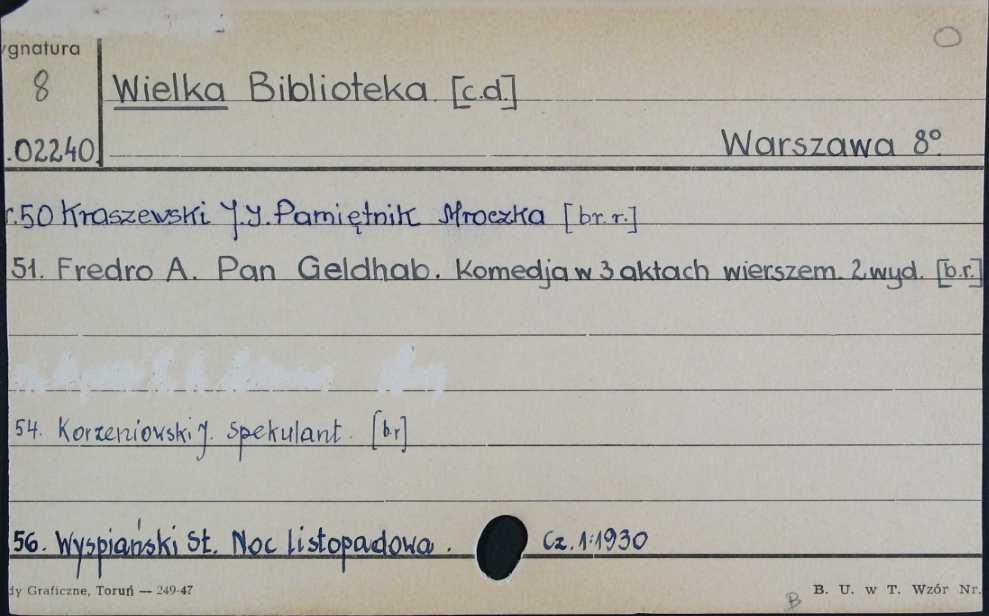 ygnatura
8
Wielka Biblioteka. [c.d.]
.02240.
Warszawa 8º.
r.50 Kraszewski J.J. Pamiętnik Mroczka [br. r.]
51. Fredro A. Pan Geldhab. Komedja w 3 aktach wierszem. 2 wyd. [b.r.]
54. Korzeniowski J. Spekulant. [br]
56. Wyspiański St. Noc listopadowa. Cz. 1:1930
dy Graficzne, Toruń — 249-47
B. U. w T. Wzór Nr.
B